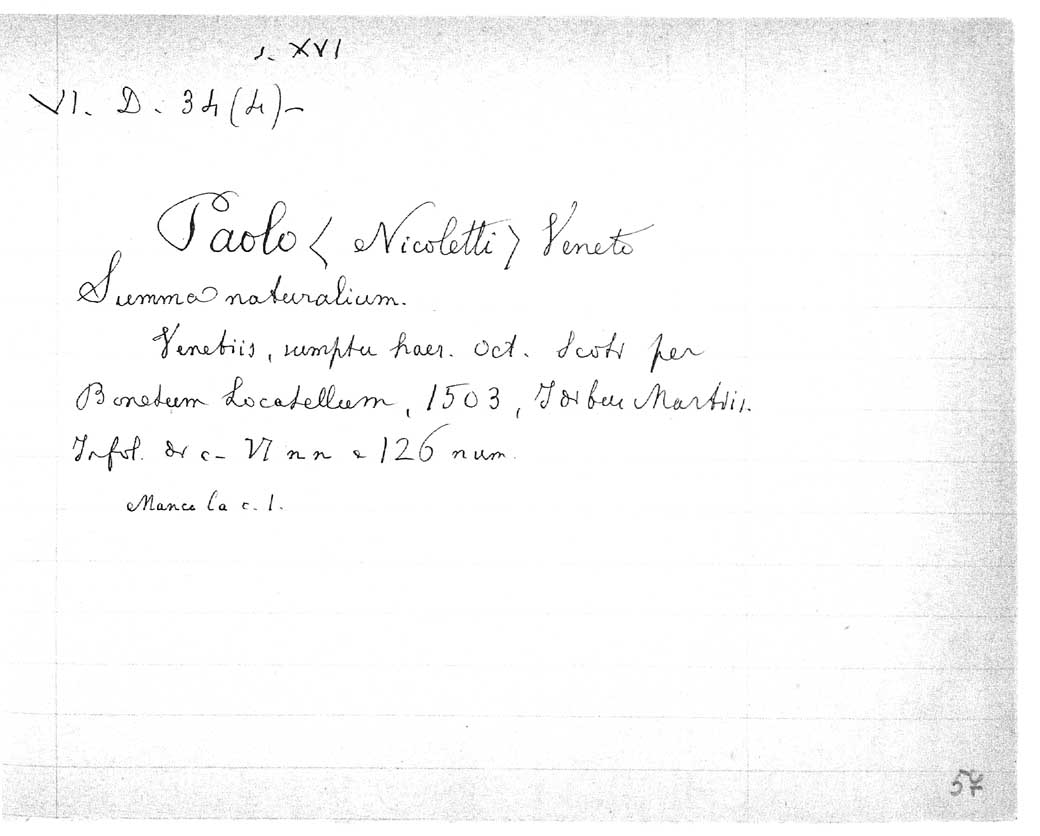 s. XVI
VI. D. 34 (4)-
Paolo < Nicoletti > Veneto
Summa naturalium.
Venetiis, sumptu haer. Oct. Scoti per
Bonetum Locatellum, 1503, Idibus Martiis.
In fol. di c. VI n n e 126 num.
Manca la c. 1.
57